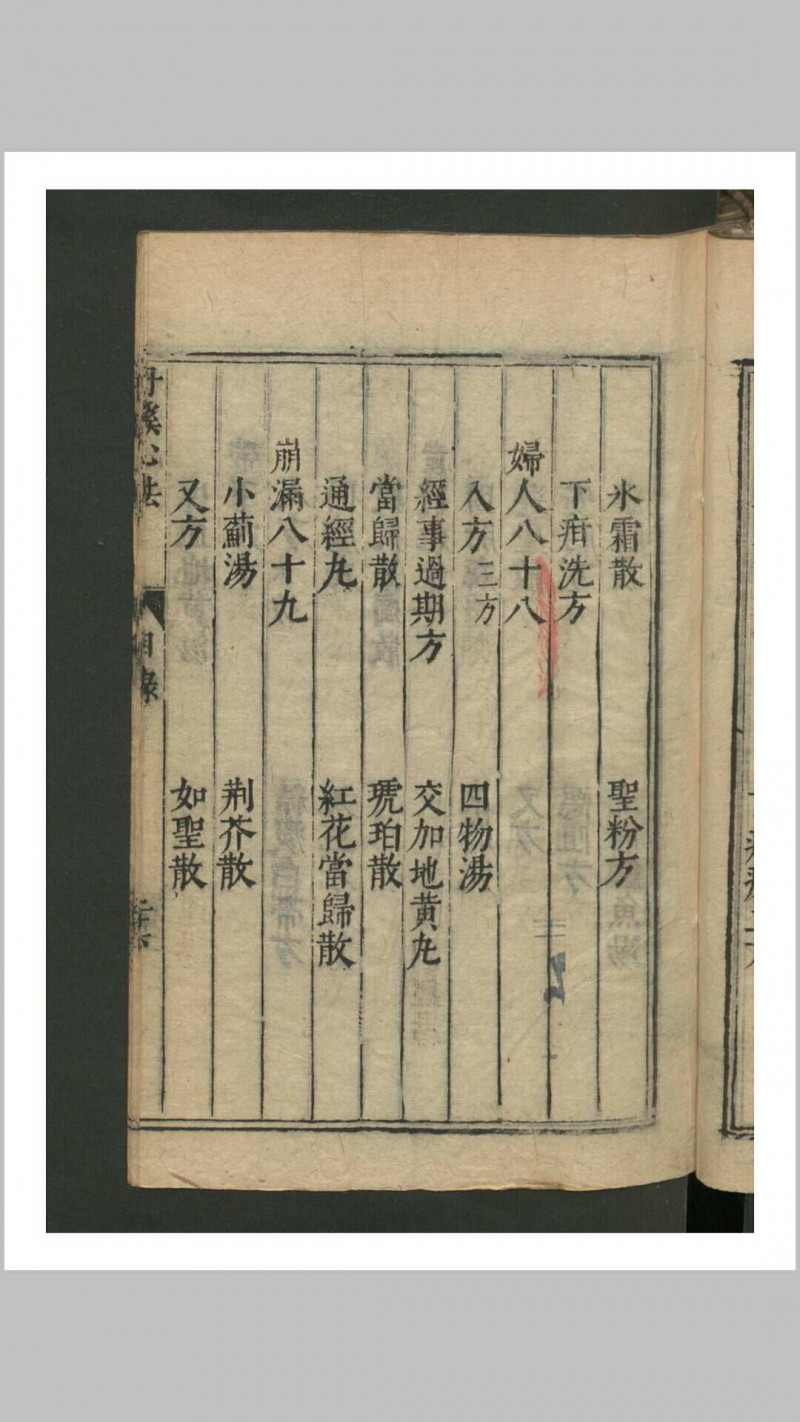 氷霜散　聖粉方
下疳洗方
婦人八十八
入方三方　四物湯
經事過期方　交加地黄𠃵
當歸散　琥珀散
通經𠃵　紅花當歸散
崩漏八十九
小薊湯　荆芥散
又方　如聖散
丹溪心法　目録